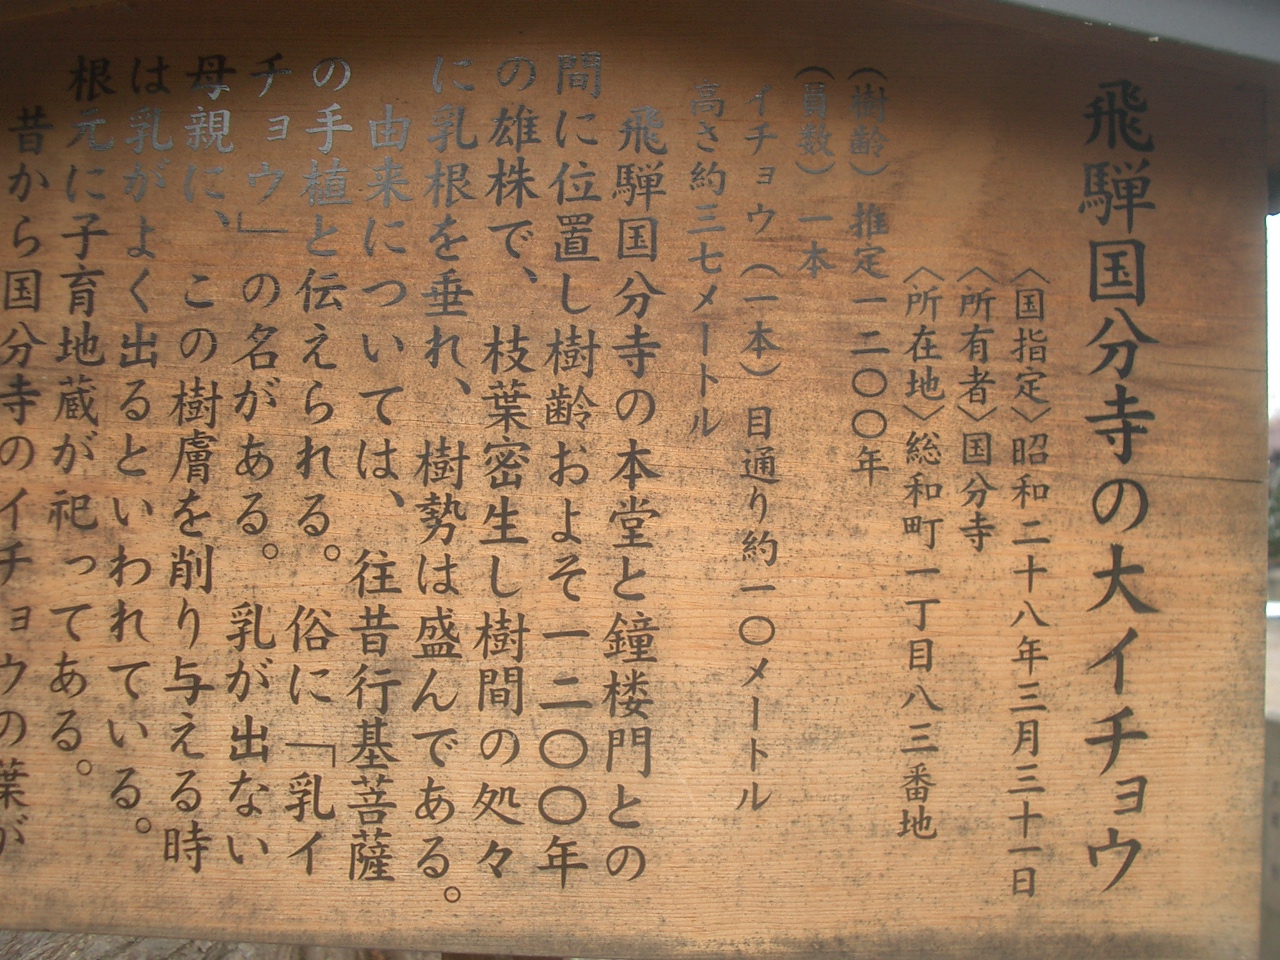 飛騨国分寺の大イチョウ
〈国指定〉昭和二十八年三月三十一日
〈所有者〉国分寺
〈所在地〉総和町一丁目八三番地
(樹齢)推定一二〇〇年
(員数)一本
イチョウ(一本)目通り約一〇メートル
高さ約三七メートル
飛騨国分寺の本堂と鐘楼門との
間に位置し樹齢およそ一二〇〇年
の雄株で、枝葉密生し樹間の処々
に乳根を垂れ、樹勢は盛んである。
由来については、往昔行基菩薩
の手植と伝えられる。俗に「乳イ
チョウ」の名がある。乳が出ない
母親に、この樹膚を削り与える時
は乳がよく出るといわれている。
根元に子育地蔵が祀ってある。
昔から国分寺のイチョウの葉が